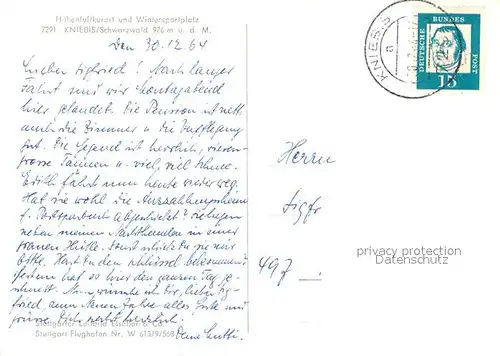 Höhenluftkurort und Wintersportplatz
7291 KNIEBIS/Schwarzwald 976 m ü. d. M.
Den 30.12.64
Lieber Sigfried! Nach langer
Fahrt sind wir Montagabend
hier gelandet. Die Pension ist nett
auch die Zimmer u. die Verpflegung
gut. Die Gegend ist herrlich, riesen-
grosse Tannen u. viel, viel Schnee.
Edith fährt nun heute wieder weg.
Hat sie wohl die Auszahlungsscheine
f. Postsparbuch abgeschickt? Sie liegen
neben meinen Nachthemden in einer
grauen Hülle. Sonst schicke sie mir
bitte. Hast Du den Schlüssel bekommen?
Gestern hat es hier den ganzen Tag ge-
schneit. Nun wünsche ich Dir, lieber Sig-
fried, zum Neuen Jahre alles Gute und
grüsse Dich recht herzlich!
Deine Mutti.
Stuttgarter Luftbild Elsäßer & Co.
Stuttgart Flughafen Nr. W 61379/568
KNIEBIS
a
DEUTSCHE BUNDESPOST
15
Herrn
Sigfr
497
privacy protection
Datenschutz